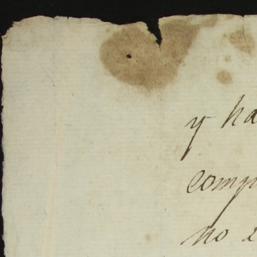 y ha
comp
no e